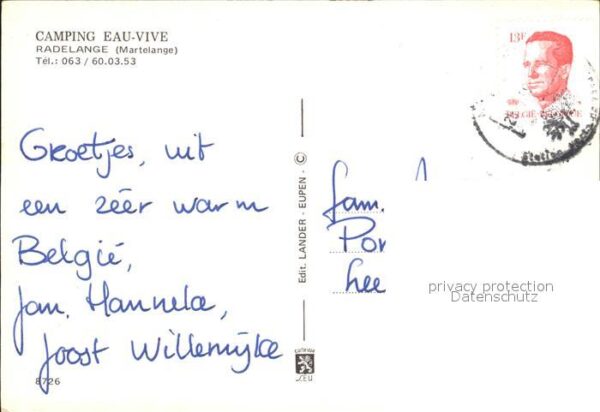 CAMPING EAU-VIVE
RADELANGE (Martelange)
Tél.: 063 / 60.03.53
13F
BELGIË-BELGIQUE
Groetjes, uit
een zéér warm
België,
Jan, Hanneke,
Joost Willemijke
8726
Edit. LANDER - EUPEN - ©
fam.
Por
hee
privacy protection
Datenschutz
LEU